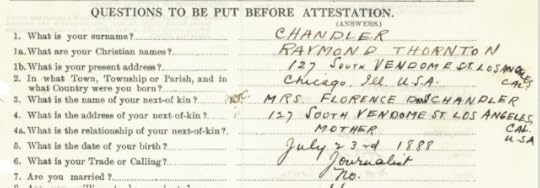 QUESTIONS TO BE PUT BEFORE ATTESTATION.
(ANSWERS.)
1. What is your surname? CHANDLER
1a. What are your Christian names? RAYMOND THORNTON
1b. What is your present address? 127 SOUTH VENDOME ST. LOS ANGELES, CAL.
2. In what Town, Township or Parish, and in
what Country were you born? Chicago, Ill U.S.A.
3. What is the name of your next-of kin? MRS. FLORENCE CHANDLER
4. What is the address of your next-of-kin? 127 SOUTH VENDOME ST. LOS ANGELES, CAL. USA
4a. What is the relationship of your next-of-kin? MOTHER
5. What is the date of your birth? July 23rd 1888
6. What is your Trade or Calling? Journalist
7. Are you married? No.